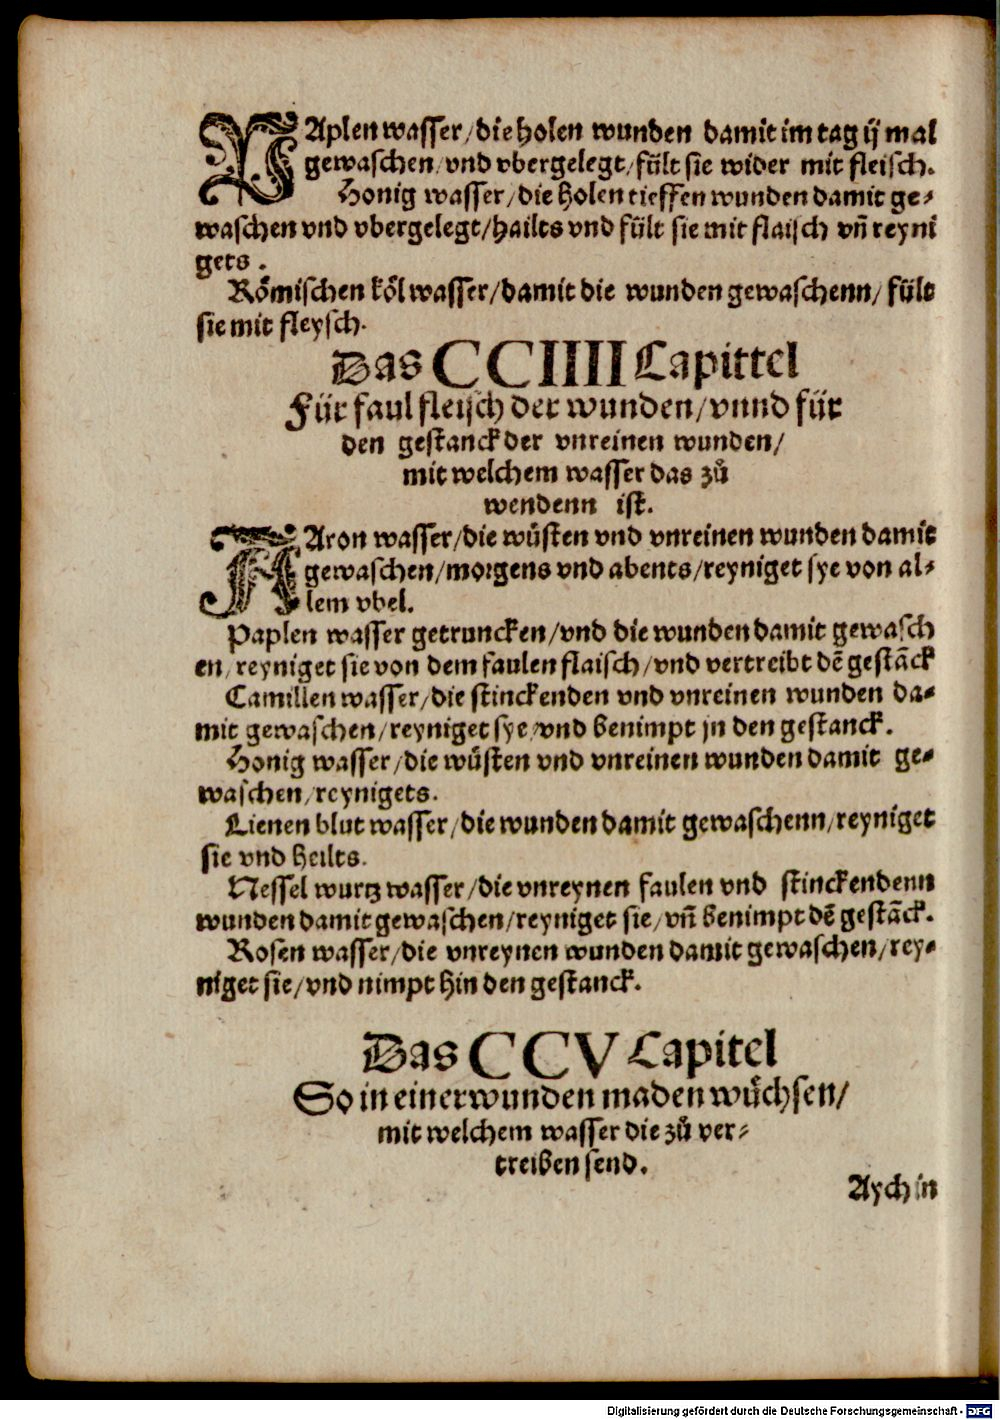 PAplen wasser/die holen wunden damit im tag ij mal
gewaschen/vnd vbergelegt/fült sie wider mit fleisch.
Honig wasser/die holen tieffen wunden damit ge⸗
waschen vnd vbergelegt/hailts vnd fült sie mit flaisch vñ reyni
gets.
Römischen köl wasser/damit die wunden gewaschenn/fült
sie mit fleysch.
Das CCIIII Capittel
Für faul fleisch der wunden/vnnd für
den gestanck der vnreinen wunden/
mit welchem wasser das zů
wendenn ist.
AAron wasser/die wüsten vnd vnreinen wunden damit
gewaschen/morgens vnd abents/reyniget sye von al⸗
lem vbel.
Paplen wasser getruncken/vnd die wunden damit gewasch
en/reyniget sie von dem faulen flaisch/vnd vertreibt dē gestāck
Camillen wasser/die stinckenden vnd vnreinen wunden da⸗
mit gewaschen/reyniget sye/vnd benimpt jn den gestanck.
Honig wasser/die wüsten vnd vnreinen wunden damit ge⸗
waschen/reynigets.
Lienen blut wasser/die wunden damit gewaschenn/reyniget
sie vnd heilts.
Nessel wurtz wasser/die vnreynen faulen vnd stinckendenn
wunden damit gewaschen/reyniget sie/vñ benimpt dē gestāck.
Rosen wasser/die vnreynen wunden damit gewaschen/rey⸗
niget sie/vnd nimpt hin den gestanck.
Das CCV Capitel
So in einer wunden maden wůchsen/
mit welchem wasser die zů ver⸗
treiben send.
Aychin
Digitalisierung gefördert durch die Deutsche Forschungsgemeinschaft - DFG